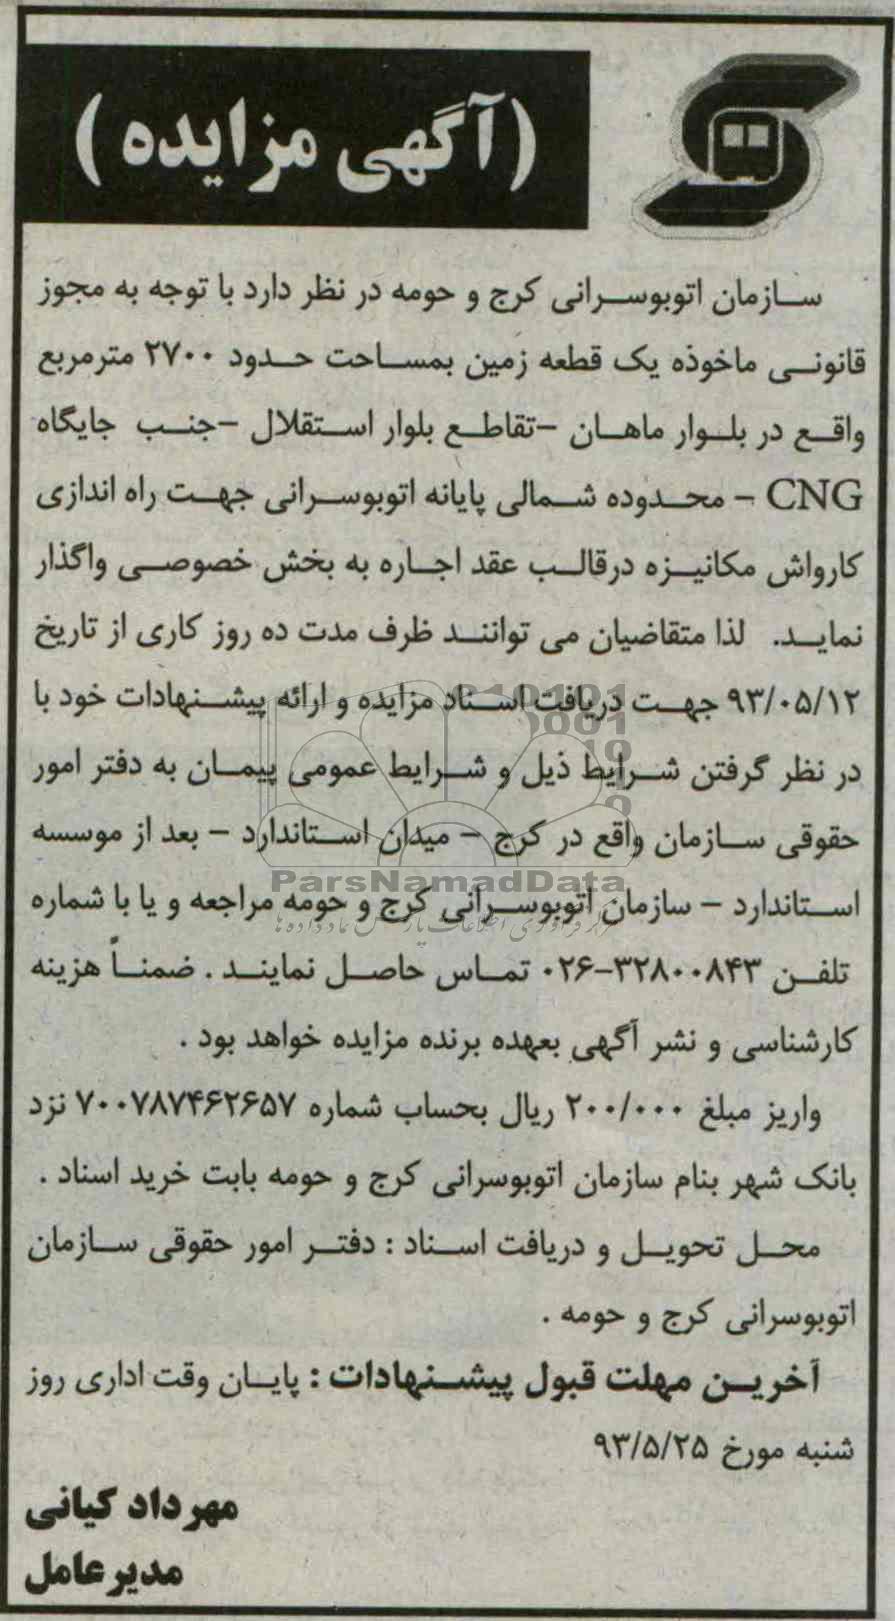 (آگهی مزایده)
سازمان اتوبوسرانی کرج و حومه در نظر دارد با توجه به مجوز
قانونی ماخوذه یک قطعه زمین بمساحت حدود ۲۷۰۰ مترمربع
واقع در بلوار ماهان -تقاطع بلوار استقلال -جنب جایگاه
CNG - محدوده شمالی پایانه اتوبوسرانی جهت راه اندازی
کارواش مکانیزه درقالب عقد اجاره به بخش خصوصی واگذار
نماید. لذا متقاضیان می توانند ظرف مدت ده روز کاری از تاریخ
۹۳/۰۵/۱۲ جهت دریافت اسناد مزایده و ارائه پیشنهادات خود با
در نظر گرفتن شرایط ذیل و شرایط عمومی پیمان به دفتر امور
حقوقی سازمان واقع در کرج - میدان استاندارد - بعد از موسسه
ParsNamadData
استاندارد - سازمان اتوبوسرانی کرج و حومه مراجعه و یا با شماره
تلفن ۳۲۸۰۰۸۴۳-۰۲۶ تماس حاصل نمایند . ضمناً هزینه
کارشناسی و نشر آگهی بعهده برنده مزایده خواهد بود .
واریز مبلغ ۲۰۰/۰۰۰ ریال بحساب شماره ۷۰۰۷۸۷۴۶۲۶۵۷ نزد
بانک شهر بنام سازمان اتوبوسرانی کرج و حومه بابت خرید اسناد .
محل تحویل و دریافت اسناد : دفتر امور حقوقی سازمان
اتوبوسرانی کرج و حومه .
آخرین مهلت قبول پیشنهادات : پایان وقت اداری روز
شنبه مورخ ۹۳/۵/۲۵
مهرداد کیانی
مدیرعامل